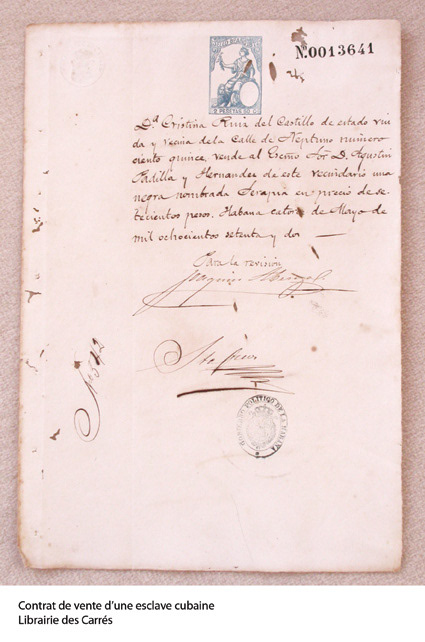 No.0013641
2 PESETAS 50 CS
Da Cristina Ruiz del Castillo de estado viu
da y vecina de la Calle de Neptuno número
ciento quince, vende al Escmo Sor D. Agustin
Padilla y Hernandez de este vecindario una
negra nombrada Serapia en precio de se
tecientos pesos. Habana catorce de Mayo de
mil ochocientos setenta y dos —
Para la revisión
No 512
GOBIERNO POLITICO DE LA HABANA
Contrat de vente d'une esclave cubaine
Librairie des Carrés